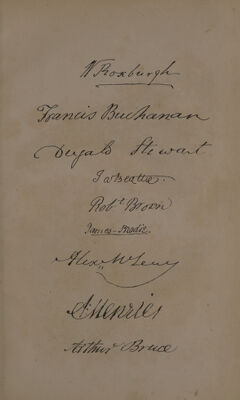 W Roxburgh
Francis Buchanan
Dugald Stewart
J. Beattie.
Robt. Brown
James Brodie.
Alex. McLeay
A Menzies
Arthur Bruce